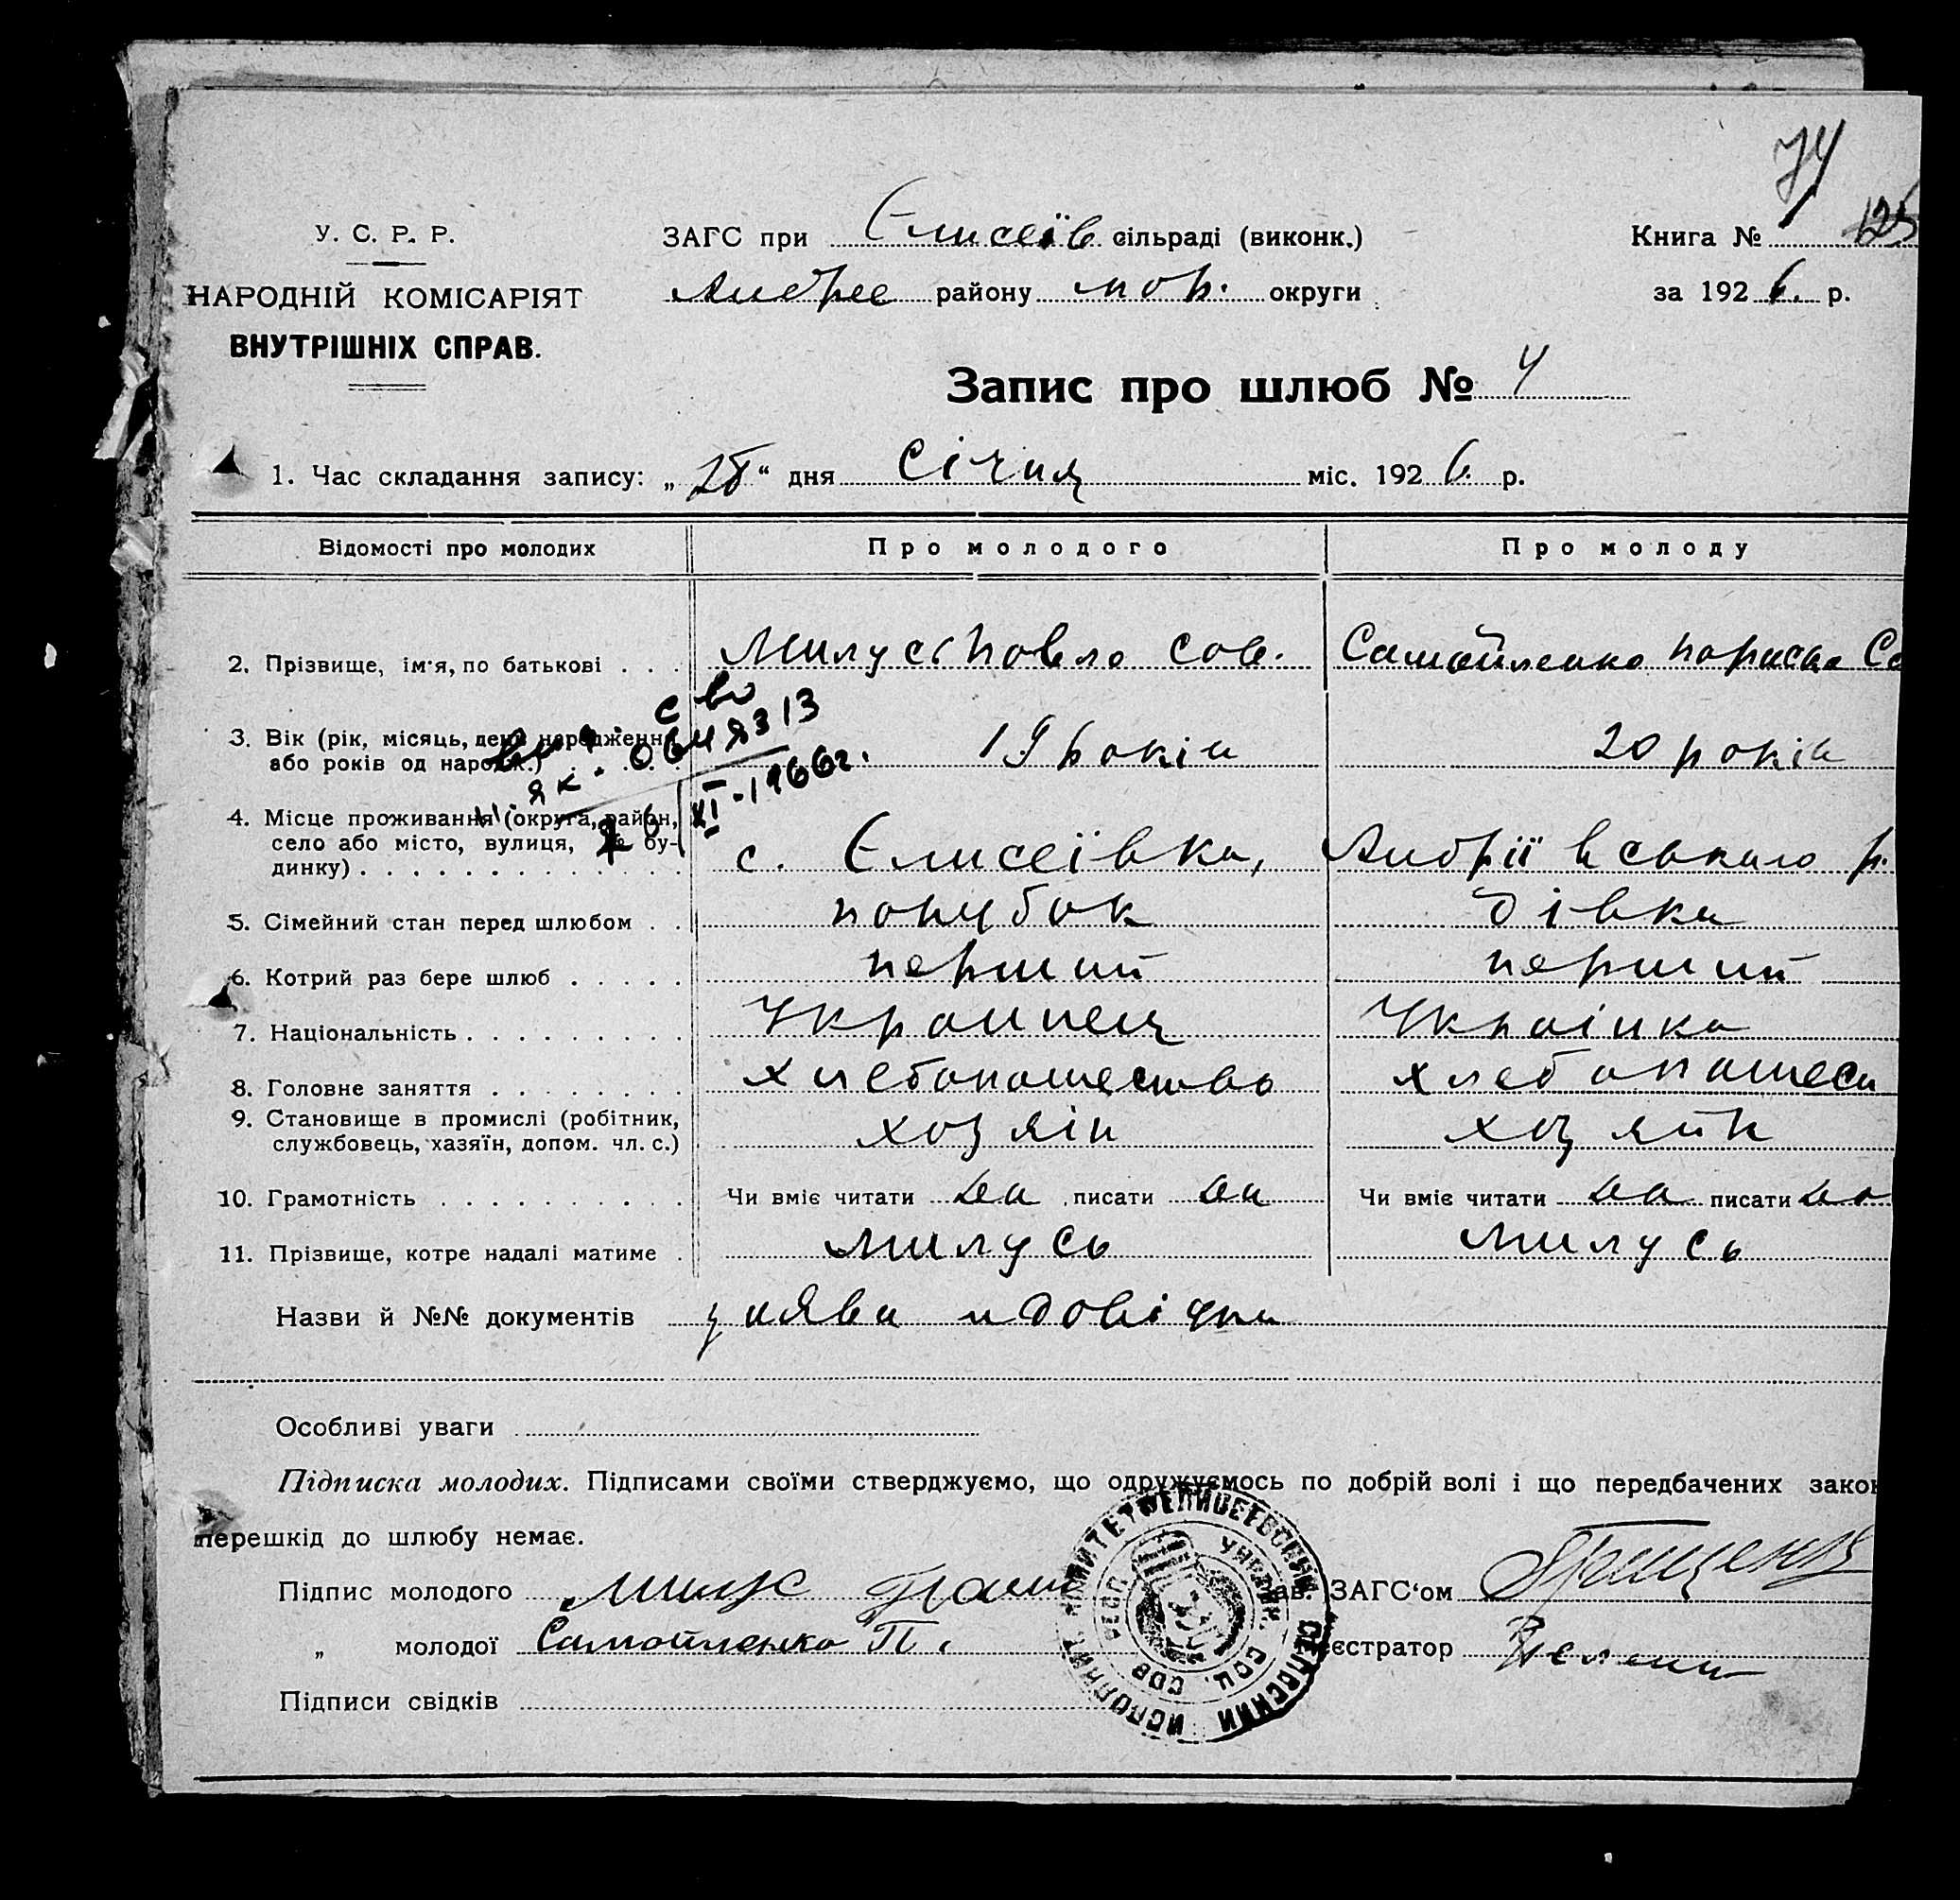 74
125
У. С. Р. Р.
НАРОДНІЙ КОМІСАРІЯТ
ВНУТРІШНІХ СПРАВ.
ЗАГС при Єлисеїв сільраді (виконк.)
Андрее району округи
Книга №
за 1926. р.
Запис про шлюб № 4
1. Час складання запису: „ “ дня Січня міс. 1926. р.
Відомості про молодих Про молодого Про молоду
2. Прізвище, ім'я, по батькові . . . Милусь Повло Сав. Самойленко Параска Са
3. Вік (рік, місяць, день народження або років од народж.) 19 років 20 років
вид. с во
ІІ ЯК. 064 ЯЗ 13
XI-1966г.
4. Місце проживання (округа, район,
село або місто, вулиця, № бу-
динку) . . . с. Єлисеївка, Андріївського р.
5. Сімейний стан перед шлюбом . . порубок дівка
6. Котрий раз бере шлюб . . . . . перший перший
7. Національність . . . . . . . . . Украинец Українка
8. Головне заняття . . . . . . . . хлебопашество хлебопашес
9. Становище в промислі (робітник,
службовець, хазяїн, допом. чл. с.) хозяін хозяйк
10. Грамотність . . . . . . . . . . Чи вміє читати да писати да Чи вміє читати да писати да
11. Прізвище, котре надалі матиме . Милусь Милусь
Назви й №№ документів заява и довічки
Особливі уваги
Підписка молодих. Підписами своїми стверджуємо, що одружуємось по добрій волі і що передбачених закон
перешкід до шлюбу немає.
Підпис молодого Милус Пав ав. ЗАГС'ом Грищенко
„ молодої Самойленко П. єстратор
Підписи свідків
ЕЛИСЕЕВСКИЙ СЕЛЬСКИЙ ИСПОЛНИТ. КОМИТЕТ
УКРАИН. СОЦ. СОВ. РЕСП.